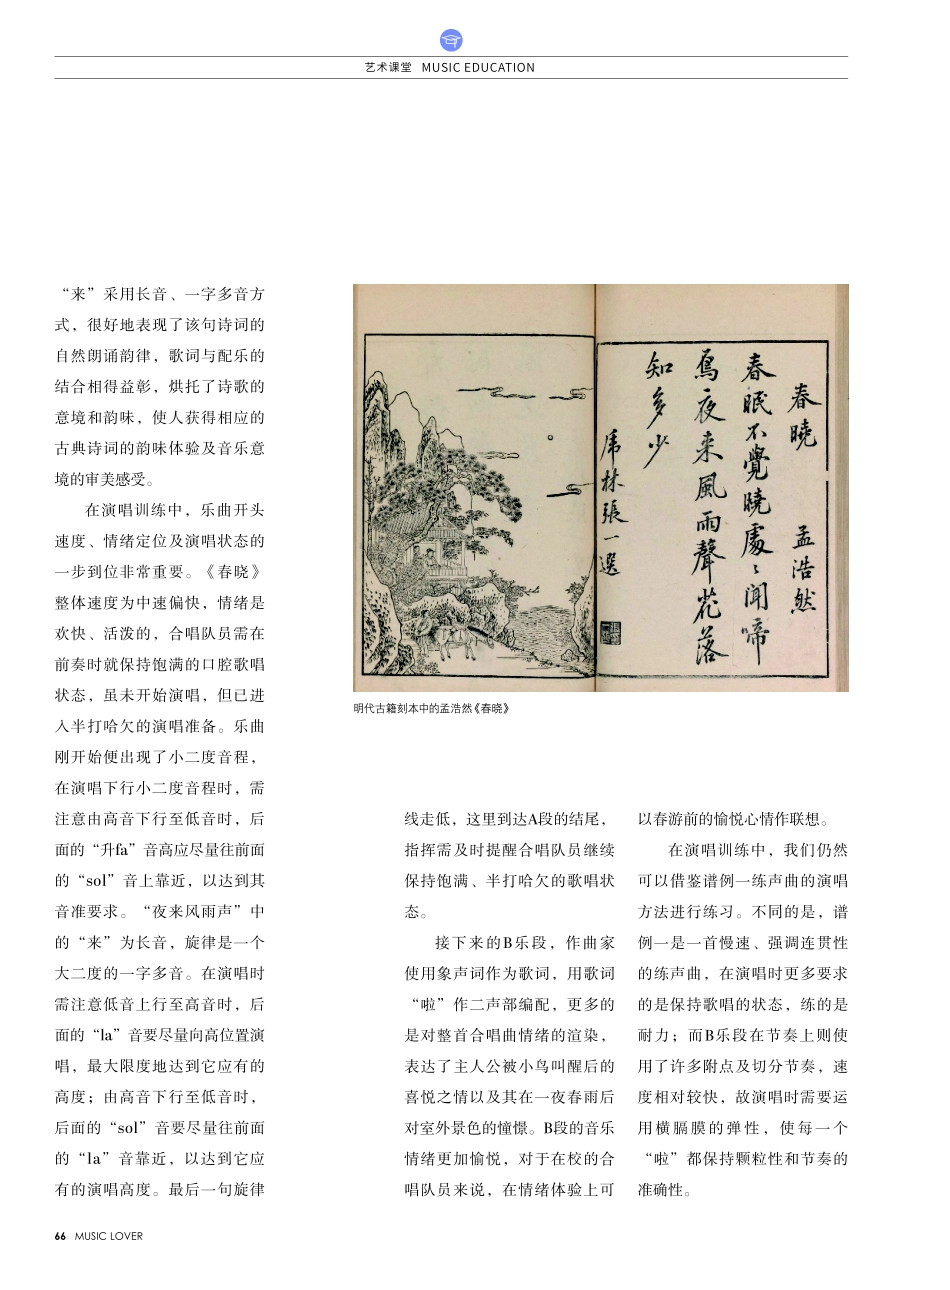 艺术课堂 MUSIC EDUCATION
“来”采用长音、一字多音方
式，很好地表现了该句诗词的
自然朗诵韵律，歌词与配乐的
结合相得益彰，烘托了诗歌的
意境和韵味，使人获得相应的
古典诗词的韵味体验及音乐意
境的审美感受。
在演唱训练中，乐曲开头
速度、情绪定位及演唱状态的
一步到位非常重要。《春晓》
整体速度为中速偏快，情绪是
欢快、活泼的，合唱队员需在
前奏时就保持饱满的口腔歌唱
状态，虽未开始演唱，但已进
入半打哈欠的演唱准备。乐曲
刚开始便出现了小二度音程，
在演唱下行小二度音程时，需
注意由高音下行至低音时，后
面的“升fa”音高应尽量往前面
的“sol”音上靠近，以达到其
音准要求。“夜来风雨声”中
的“来”为长音，旋律是一个
大二度的一字多音。在演唱时
需注意低音上行至高音时，后
面的“la”音要尽量向高位置演
唱，最大限度地达到它应有的
高度；由高音下行至低音时，
后面的“sol”音要尽量往前面
的“la”音靠近，以达到它应
有的演唱高度。最后一句旋律
春曉 孟浩然
春眠不覺曉處〻聞啼
鳥夜来風雨聲花落
知多少
虎林張一選
明代古籍刻本中的孟浩然《春晓》
线走低，这里到达A段的结尾，
指挥需及时提醒合唱队员继续
保持饱满、半打哈欠的歌唱状
态。
接下来的B乐段，作曲家
使用象声词作为歌词，用歌词
“啦”作二声部编配，更多的
是对整首合唱曲情绪的渲染，
表达了主人公被小鸟叫醒后的
喜悦之情以及其在一夜春雨后
对室外景色的憧憬。B段的音乐
情绪更加愉悦，对于在校的合
唱队员来说，在情绪体验上可
以春游前的愉悦心情作联想。
在演唱训练中，我们仍然
可以借鉴谱例一练声曲的演唱
方法进行练习。不同的是，谱
例一是一首慢速、强调连贯性
的练声曲，在演唱时更多要求
的是保持歌唱的状态，练的是
耐力；而B乐段在节奏上则使
用了许多附点及切分节奏，速
度相对较快，故演唱时需要运
用横膈膜的弹性，使每一个
“啦”都保持颗粒性和节奏的
准确性。
66 MUSIC LOVER